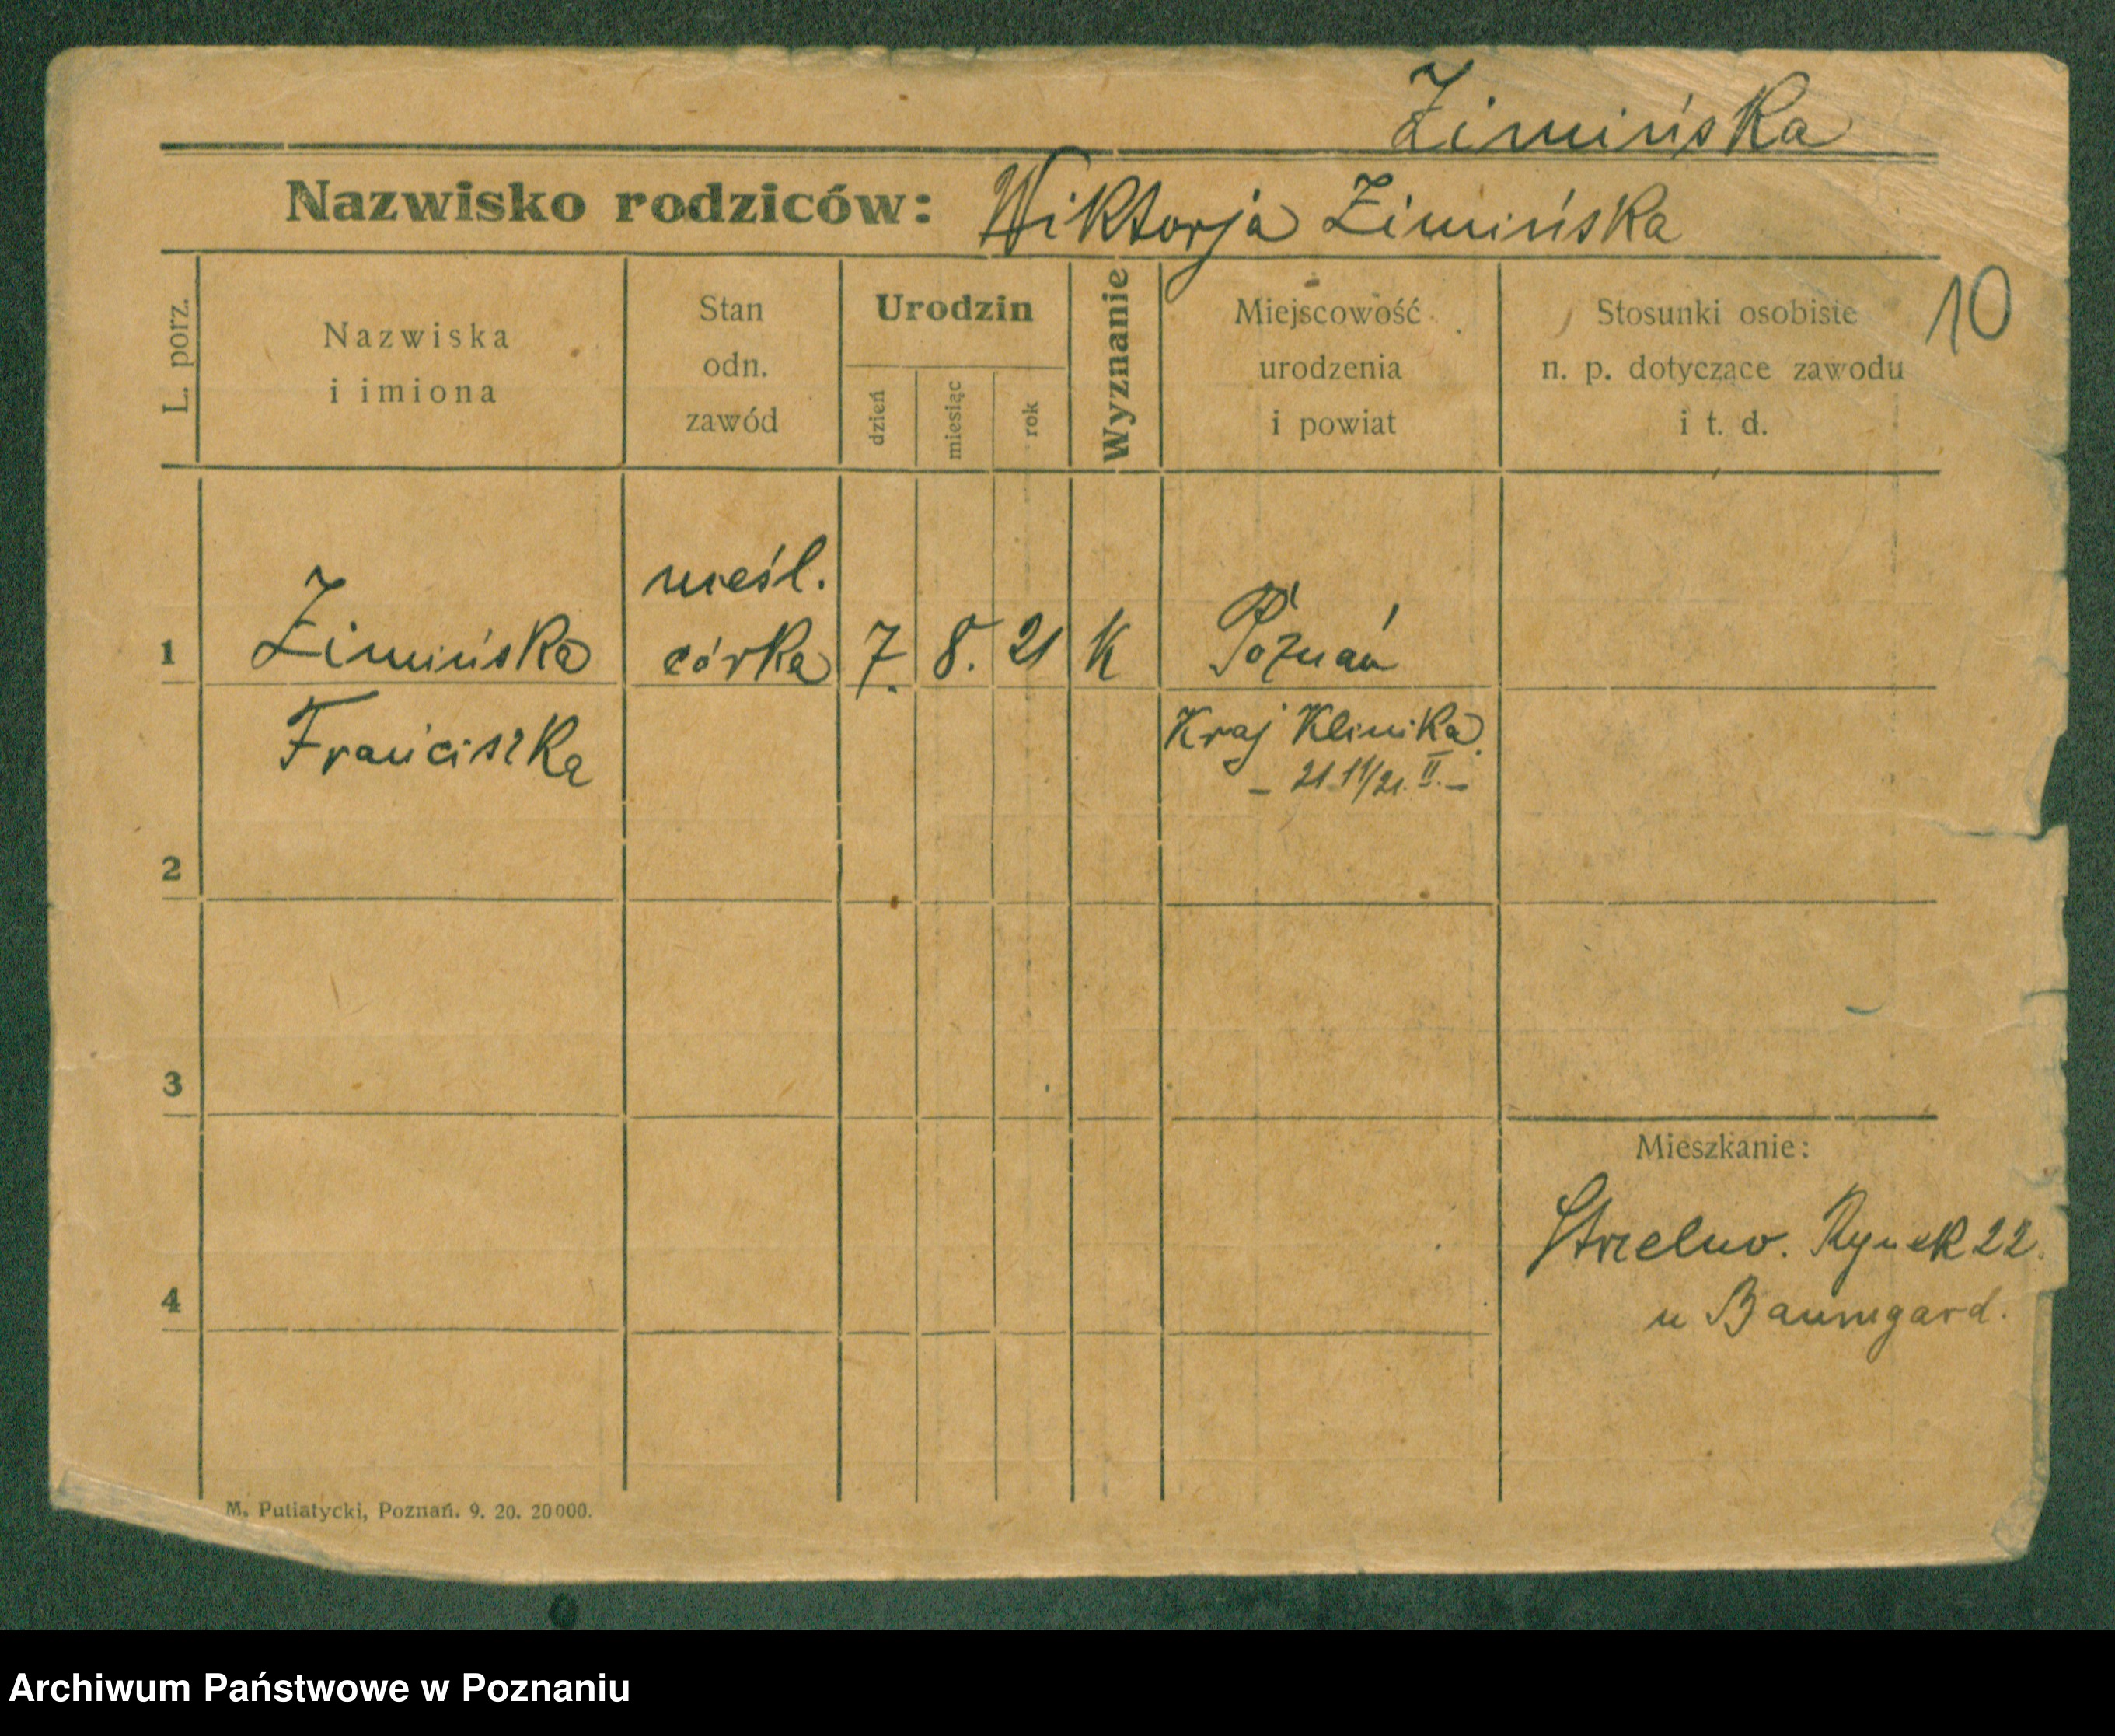 Zimińska
Nazwisko rodziców: Wiktorja Zimińska
10
L. porz.
Nazwiska
i imiona
Stan
odn.
zawód
Urodzin
dzień
miesiąc
rok
Wyznanie
Miejscowość
urodzenia
i powiat
Stosunki osobiste
n. p. dotyczące zawodu
i t. d.
nieśl.
1 Zimińska córka 7. 8. 21 K Poznań
Franciszka Kraj Klinika
- 21.11/21. II. -
2
3
Mieszkanie:
Strzelno. Rynek 22.
4
u Baumgard.
M. Putiatycki, Poznań. 9. 20. 20000.
Archiwum Państwowe w Poznaniu